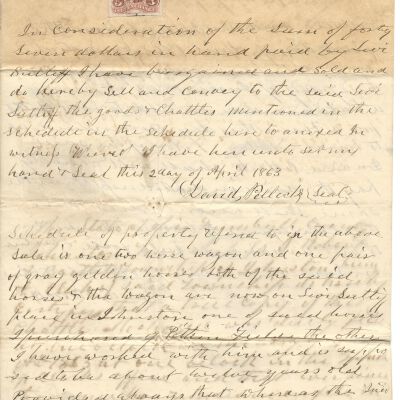 In Consideration of the Sum of forty
Seven dollars in hand paid by Levi
Sutliff I have bargained and Sold and
do hereby Sell and Convey to the said Levi
Sutliff the goods & Chattles mentioned in the
Schedule in the Schedule here to annexed In
witness Whereof I have here unto set my
hand & Seal this 2 day of April 1863
David Pollock Seal
Schedule of property referred to in the above
Sale is one two horse wagon and one pair
of gray gelden horses both of the said
horses & the wagon are now on Levi Sutliff
place in Johnston one of said horses
I purchased of the other
I have worked with him and is suppo
sed to be about twelve years old
Provided always that the said